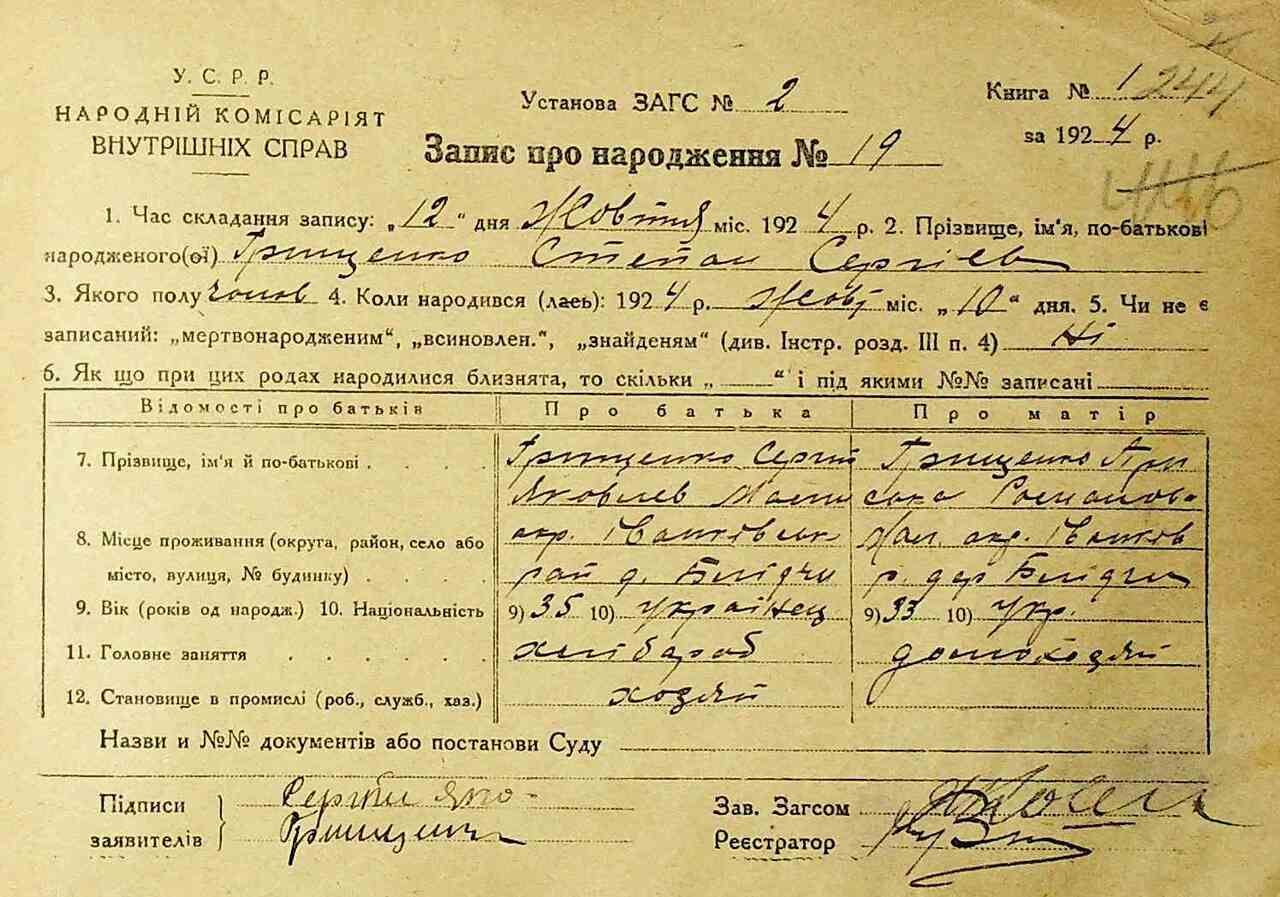 У. С. Р. Р.
НАРОДНІЙ КОМІСАРІЯТ
ВНУТРІШНІХ СПРАВ
Установа ЗАГС № 2
Книга № 1 244
за 1924 р.
Запис про народження № 19
446
1. Час складання запису: „12“ дня Жовтня міс. 1924 р. 2. Прізвище, ім'я, по-батькові
народженого(ої) Грищенко Степан Сергіев
3. Якого полу чолов 4. Коли народився (лась): 1924 р. Жовт міс. „10“ дня. 5. Чи не є
записаний: „мертвонародженим“, „всиновлен.“, „знайденям“ (див. Інстр. розд. III п. 4) Ні
6. Як що при цих родах народилися близнята, то скільки „ “ і під якими №№ записані
Відомості про батьків Про батька Про матір
7. Прізвище, ім'я й по-батькові Грищенко Сергій Грищенко При
Яковлев Мали ська Романов
8. Місце проживання (округа, район, село або окр. Іванківськ Мал. окр. Іванков
місто, вулиця, № будинку) рай д. Блідчи р. дер Блідчи
9. Вік (років од народж.) 10. Національність 9) 35 10) українец 9) 33 10) укр.
11. Головне заняття хлібароб домохозяй
12. Становище в промислі (роб., служб., хаз.) хозяй
Назви и №№ документів або постанови Суду
Підписи Сергѣй Яко-
заявителів Грищенко
Зав. Загсом
Реєстратор